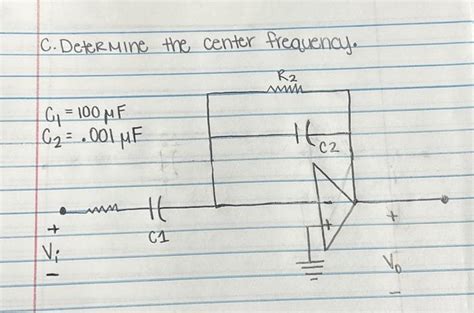 C. Determine the center frequency.
R2
C1 = 100 μF
C2 = .001 μF
C2
C1
+
Vi
-
-
+
+
Vo
-